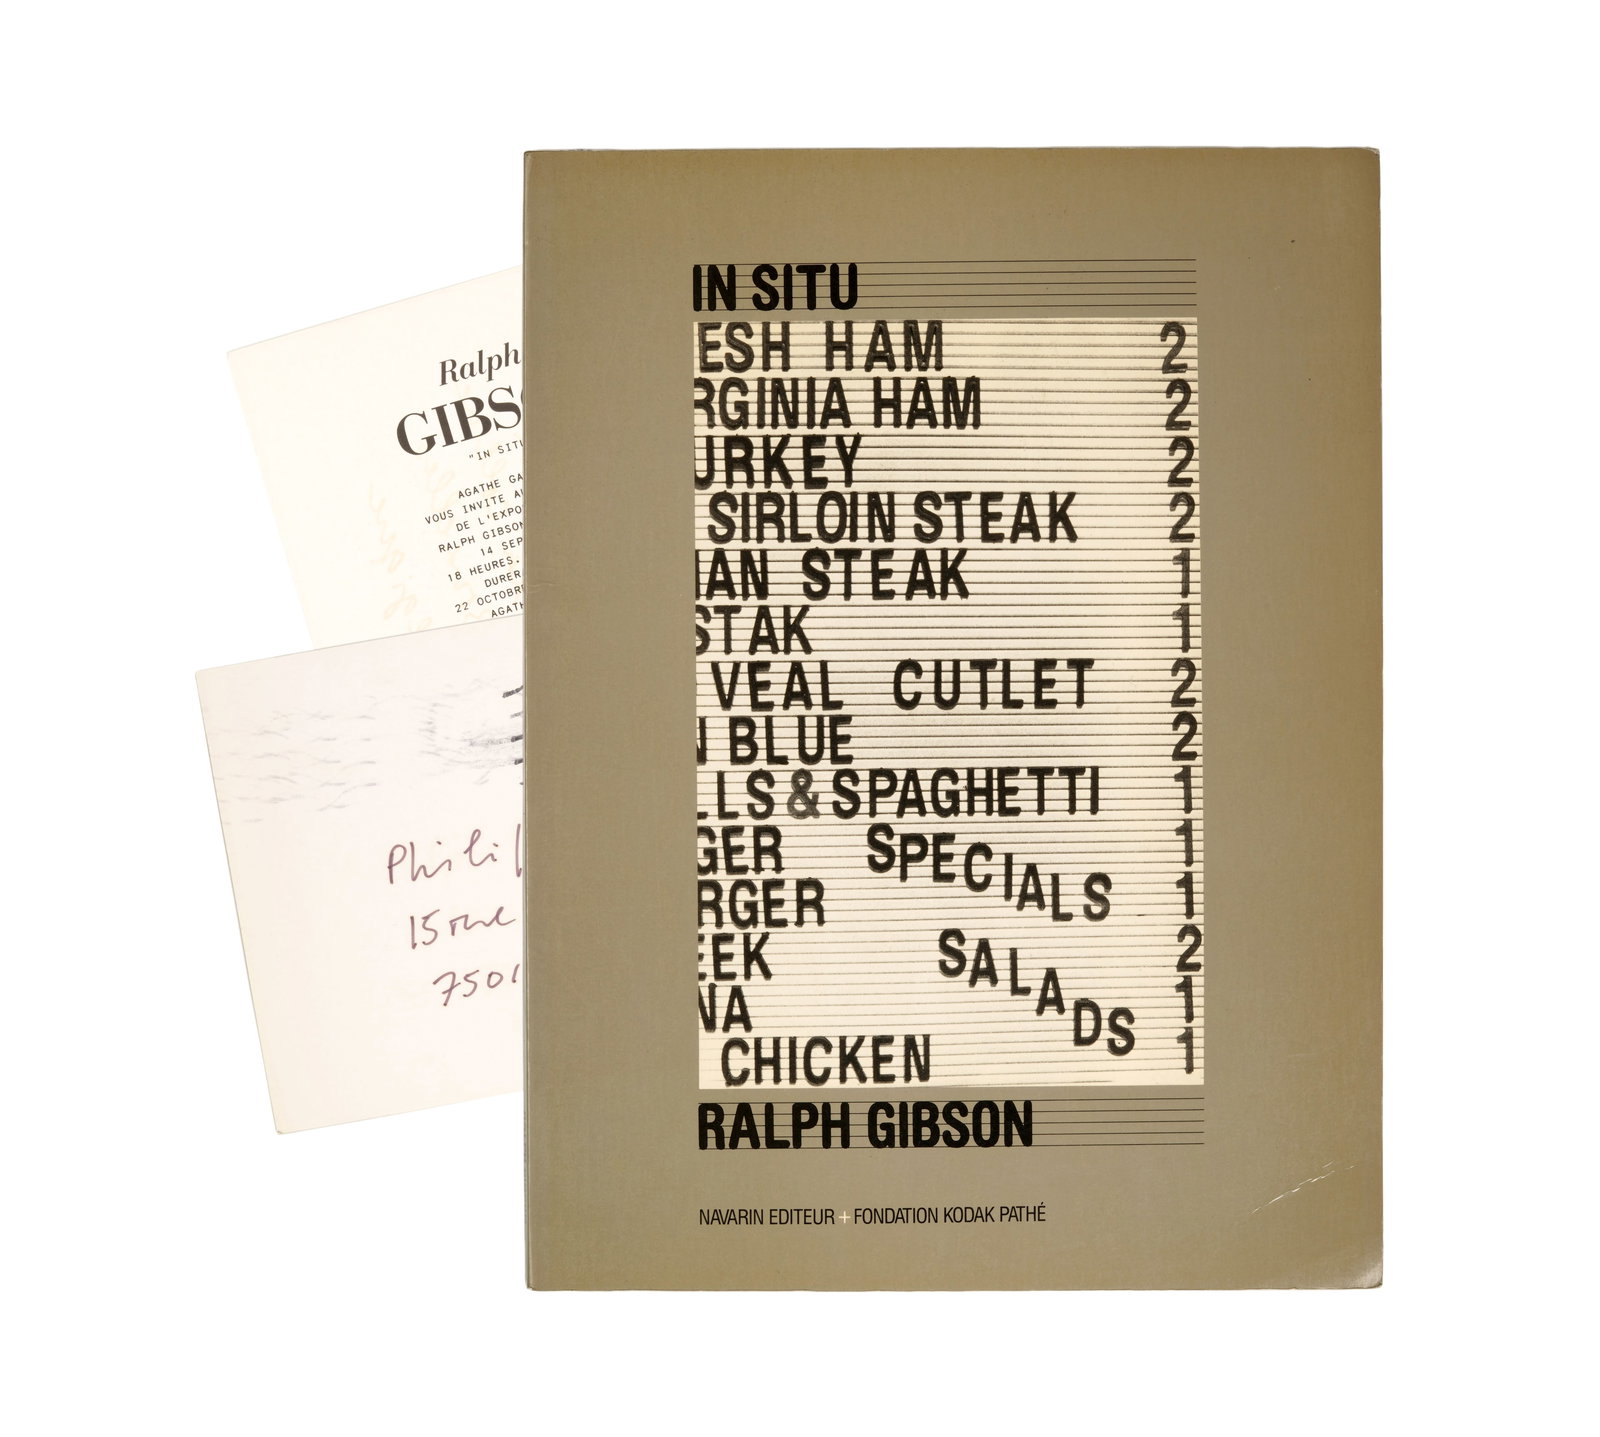 Ralph
GIBS
"IN SITU
AGATHE GA
VOUS INVITE A
DE L'EXPO
RALPH GIBSON
14 SEP
18 HEURES.
DURER
22 OCTOBRE
AGATH
Phili
15 rue
7501
IN SITU
ESH HAM 2
RGINIA HAM 2
URKEY 2
SIRLOIN STEAK 2
IAN STEAK 1
STAK 1
VEAL CUTLET 2
N BLUE 2
LLS & SPAGHETTI 1
GER SPECIALS 1
RGER 1
EEK SALADS 2
NA 1
CHICKEN 1
RALPH GIBSON
NAVARIN EDITEUR + FONDATION KODAK PATHÉ